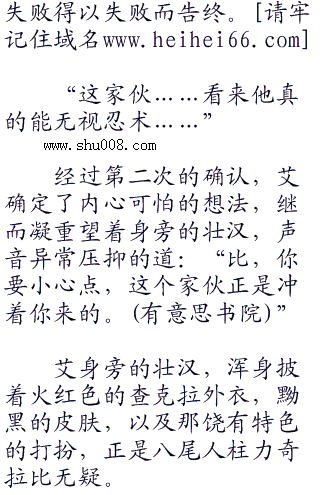 失败得以失败而告终。[请牢
记住域名www.heihei66.com]
“这家伙……看来他真
的能无视忍术……”
www.shu008.com
经过第二次的确认，艾
确定了内心可怕的想法，继
而凝重望着身旁的壮汉，声
音异常压抑的道：“比，你
要小心点，这个家伙正是冲
着你来的。(有意思书院)”
艾身旁的壮汉，浑身披
着火红色的查克拉外衣，黝
黑的皮肤，以及那饶有特色
的打扮，正是八尾人柱力奇
拉比无疑。